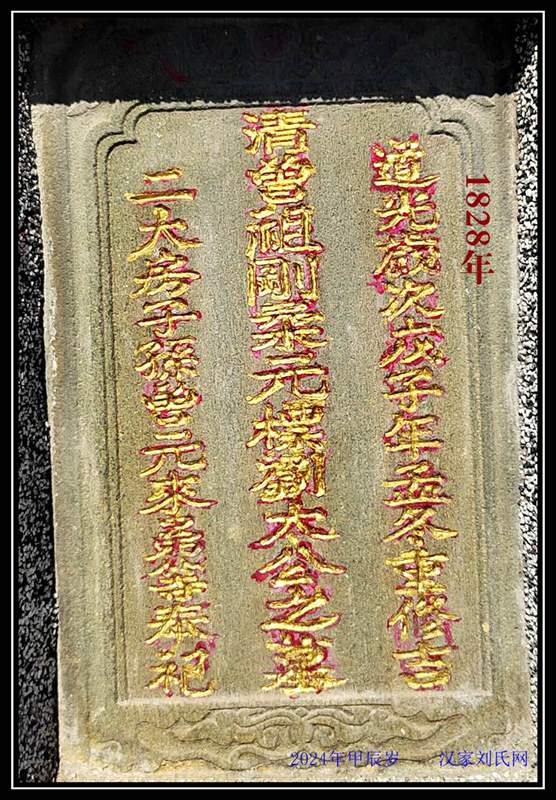 1828年
道光歲次戊子年孟冬重修吉
清曾祖剛柔元標劉太公之墓
二大房子孫曾元來等奉祀
2024年甲辰岁 汉家刘氏网